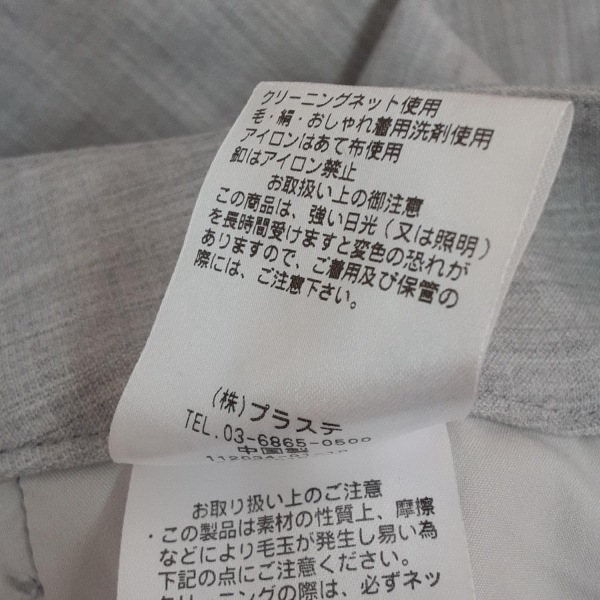 クリーニングネット使用
毛・絹・おしゃれ着用洗剤使用
アイロンはあて布使用
釦はアイロン禁止
お取扱い上の御注意
この商品は、強い日光(又は照明)
を長時間受けますと変色の恐れが
ありますので、ご着用及び保管の
際には、ご注意下さい。
(株)プラステ
TEL.03-6865-0500
中国製
お取り扱い上のご注意
・この製品は素材の性質上、摩擦
などにより毛玉が発生し易い為
下記の点にご注意ください。
クリーニングの際は、必ずネッ